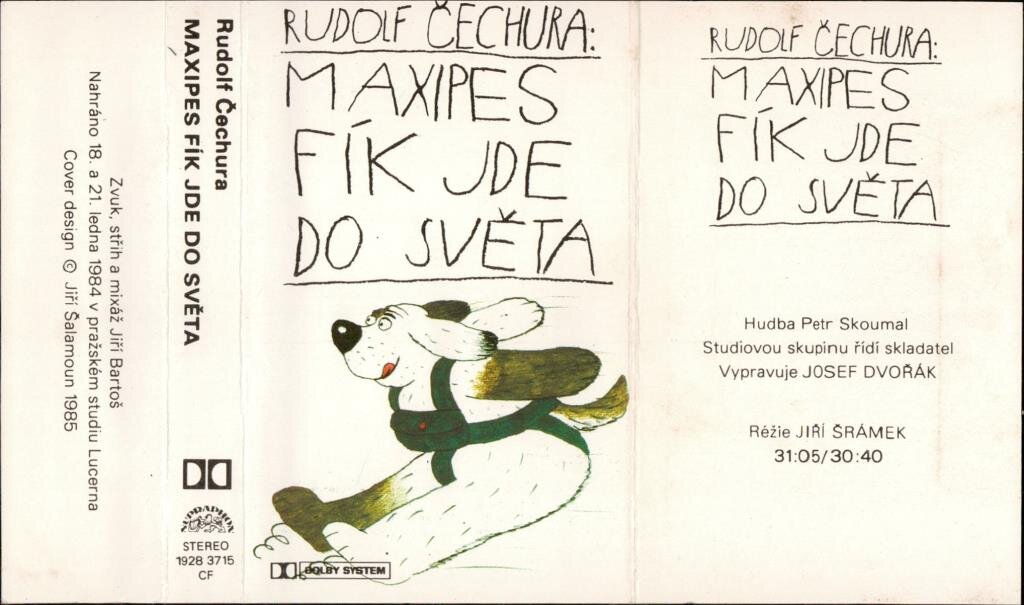 Zvuk, střih a mixáž Jiří Bartoš
Nahráno 18. a 21. ledna 1984 v pražském studiu Lucerna
Cover design © Jiří Šalamoun 1985
Rudolf Čechura
MAXIPES FÍK JDE DO SVĚTA
SUPRAPHON
STEREO
1928 3715
CF
RUDOLF ČECHURA:
MAXIPES
FÍK JDE
DO SVĚTA
DOLBY SYSTEM
RUDOLF ČECHURA:
MAXIPES
FÍK JDE
DO SVĚTA
Hudba Petr Skoumal
Studiovou skupinu řídí skladatel
Vypravuje JOSEF DVOŘÁK
Régie JIŘÍ ŠRÁMEK
31:05/30:40